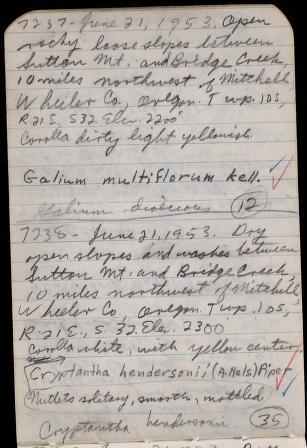 7237- June 21, 1953. Open
rocky loose slopes between
Sutton Mt. and Bridge Creek,
10 miles northwest of Mitchell,
Wheeler Co., Oregon. T wp. 10S,
R. 21 E, S 32 Elev. 2200'
Corolla dirty light yellowish.
Galium multiflorum Kell.
Galium dioecious (12)
7238- June 21, 1953. Dry
open slopes and washes between
Sutton Mt. and Bridge Creek,
10 miles northwest of Mitchell
Wheeler Co, Oregon. Twp. 10S,
R. 21 E., S. 32. Ele. 2300
Corolla white, with yellow center.
Cryptantha hendersonii (A. Nels.) Piper
Nutlets solitary, smooth, mottled
Cryptantha hendersonii (35)